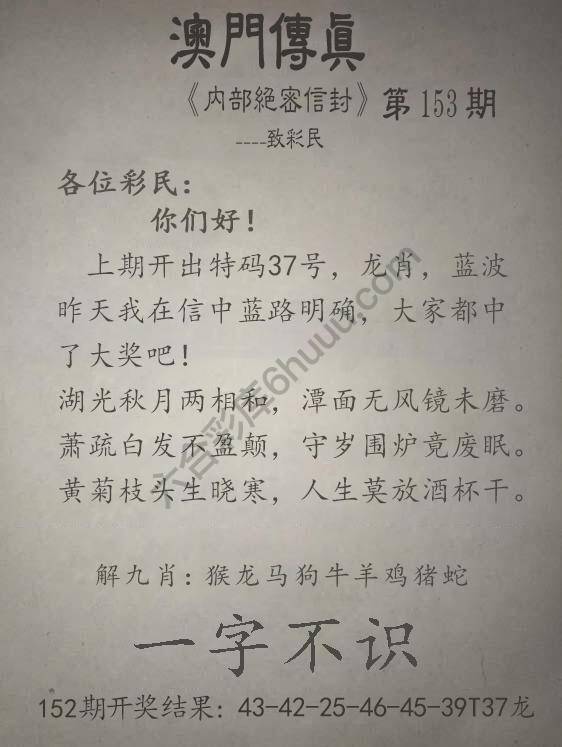 澳門傳真
《内部絕密信封》第153期
----致彩民
各位彩民：
你们好！
上期开出特码37号，龙肖，蓝波
昨天我在信中蓝路明确，大家都中
了大奖吧！
湖光秋月两相和，潭面无风镜未磨。
萧疏白发不盈颠，守岁围炉竟废眠。
黄菊枝头生晓寒，人生莫放酒杯干。
解九肖：猴龙马狗牛羊鸡猪蛇
一字不识
152期开奖结果：43-42-25-46-45-39T37龙
六合彩库6huuu.com